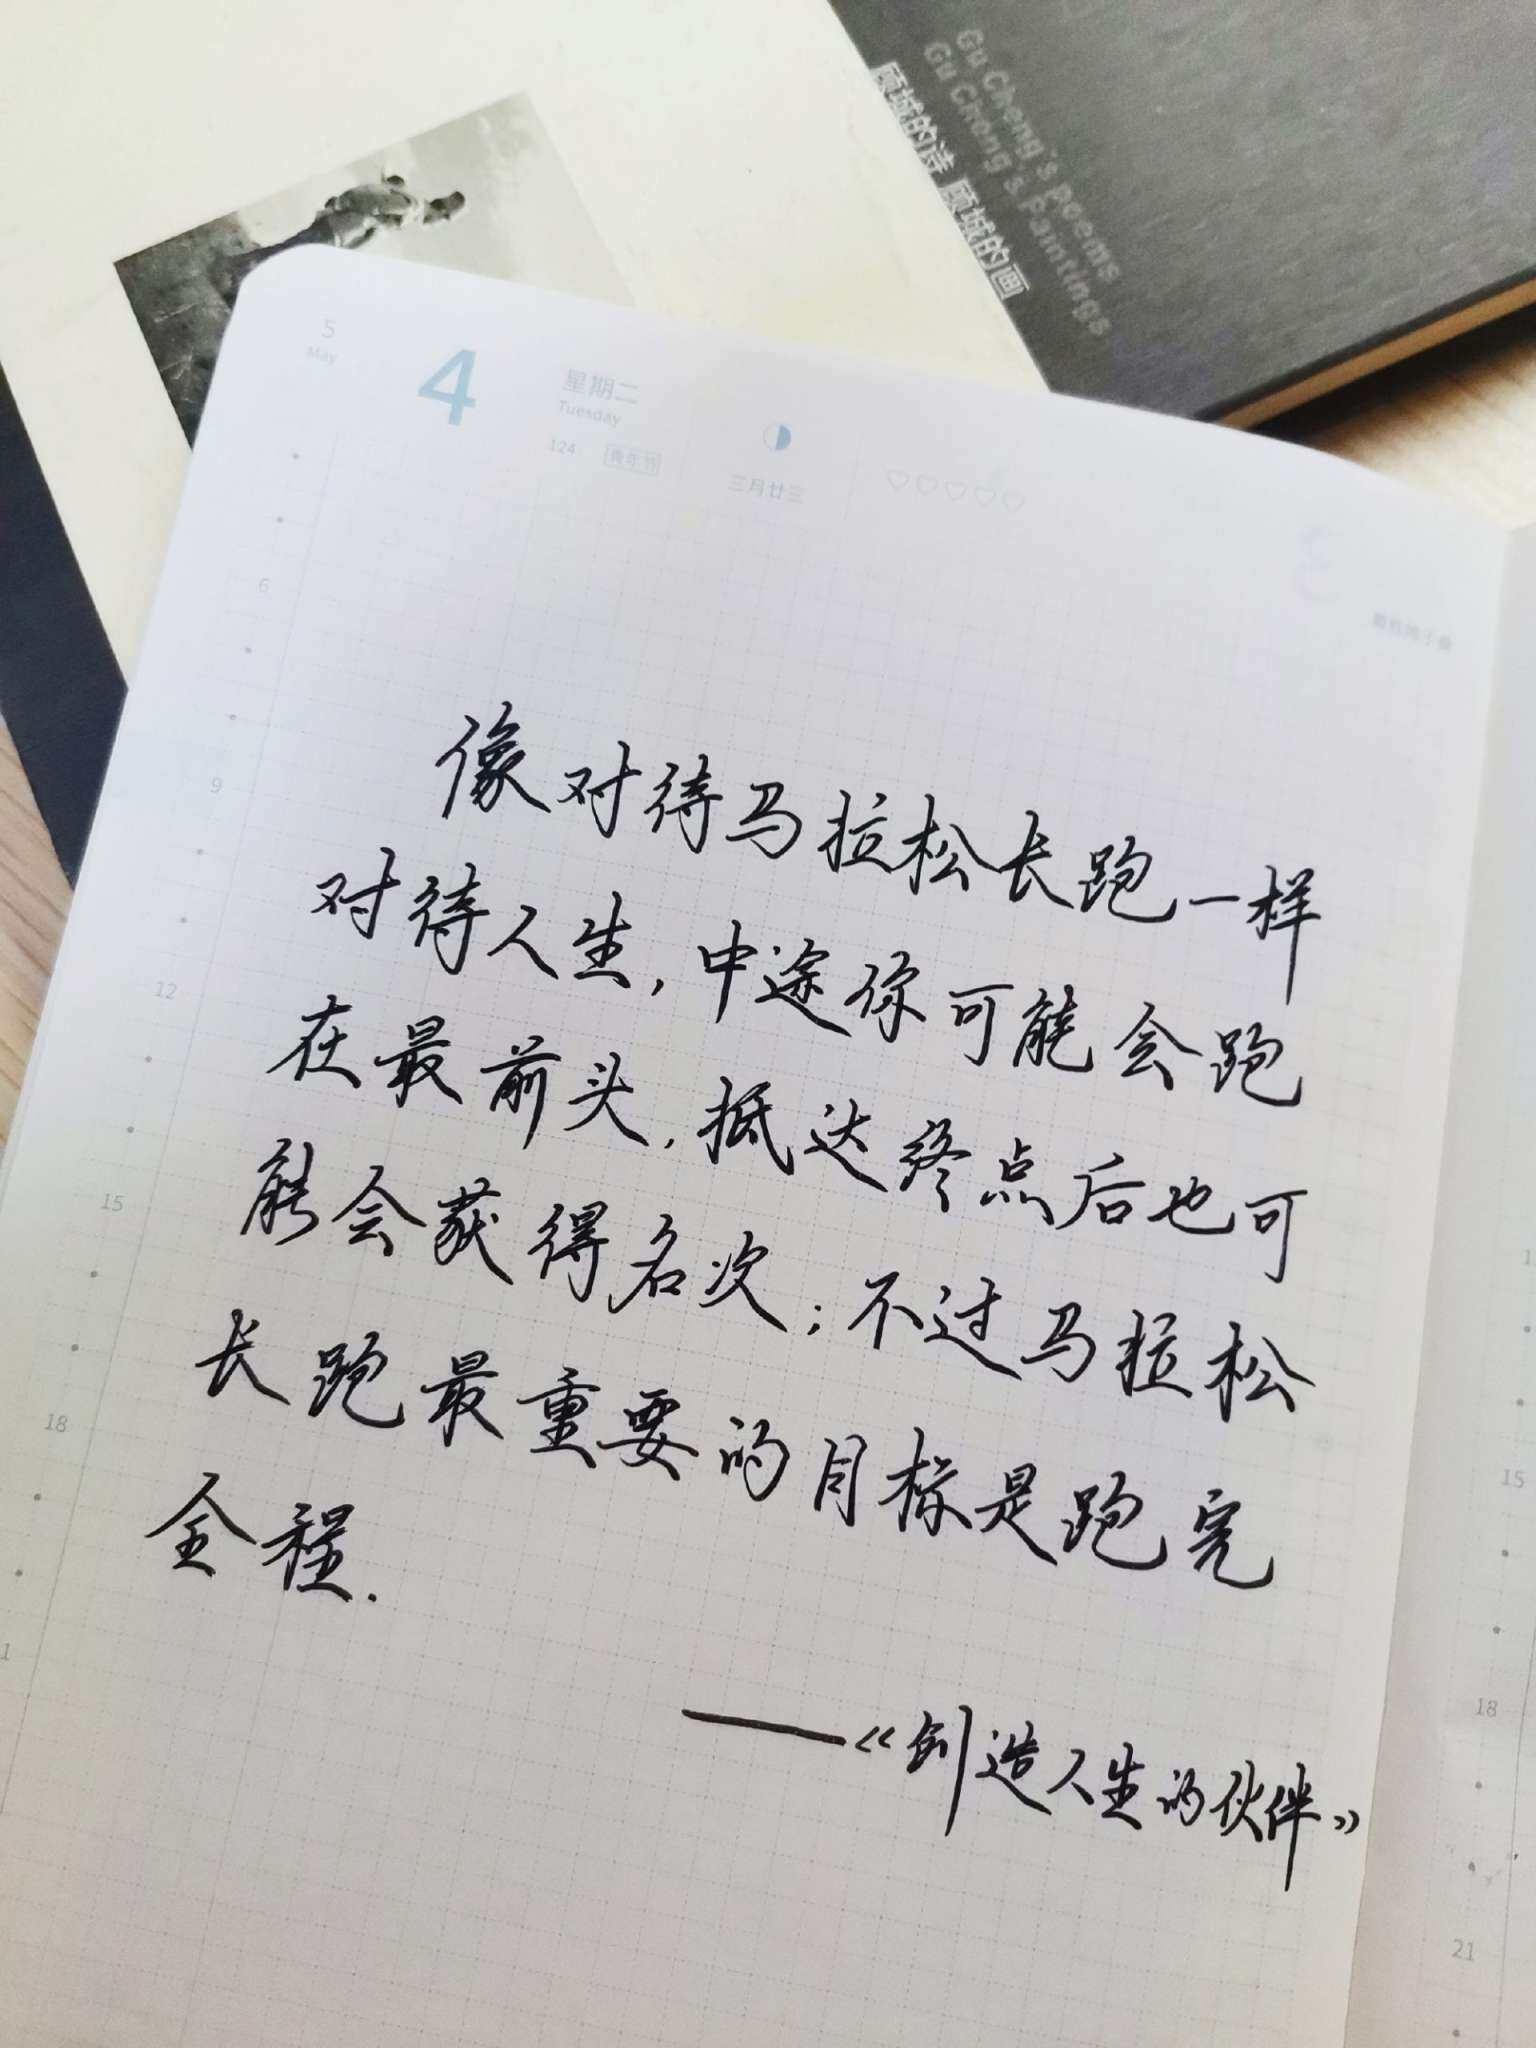 Gu Cheng's poems
Gu Cheng's Paintings
顾城的诗 顾城的画
5
May
4
星期二
Tuesday
124 青年节
三月廿三
6
9
12
15
18
像对待马拉松长跑一样
对待人生,中途你可能会跑
在最前头,抵达终点后也可
能会获得名次;不过马拉松
长跑最重要的目标是跑完
全程.
——《创造人生的伙伴》
15
18
21